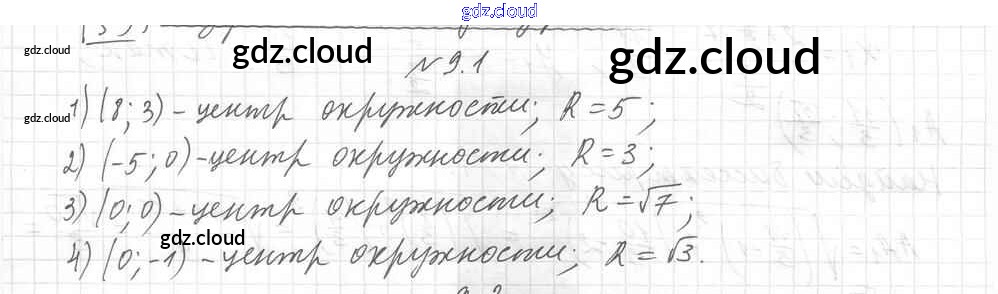 gdz.cloud
gdz.cloud gdz.cloud
№9.1
gdz.cloud
1) (8; 3) - центр окружности; R = 5;
2) (-5; 0) - центр окружности; R = 3;
3) (0; 0) - центр окружности; R = √7;
gdz.cloud
4) (0; -1) - центр окружности; R = √3.